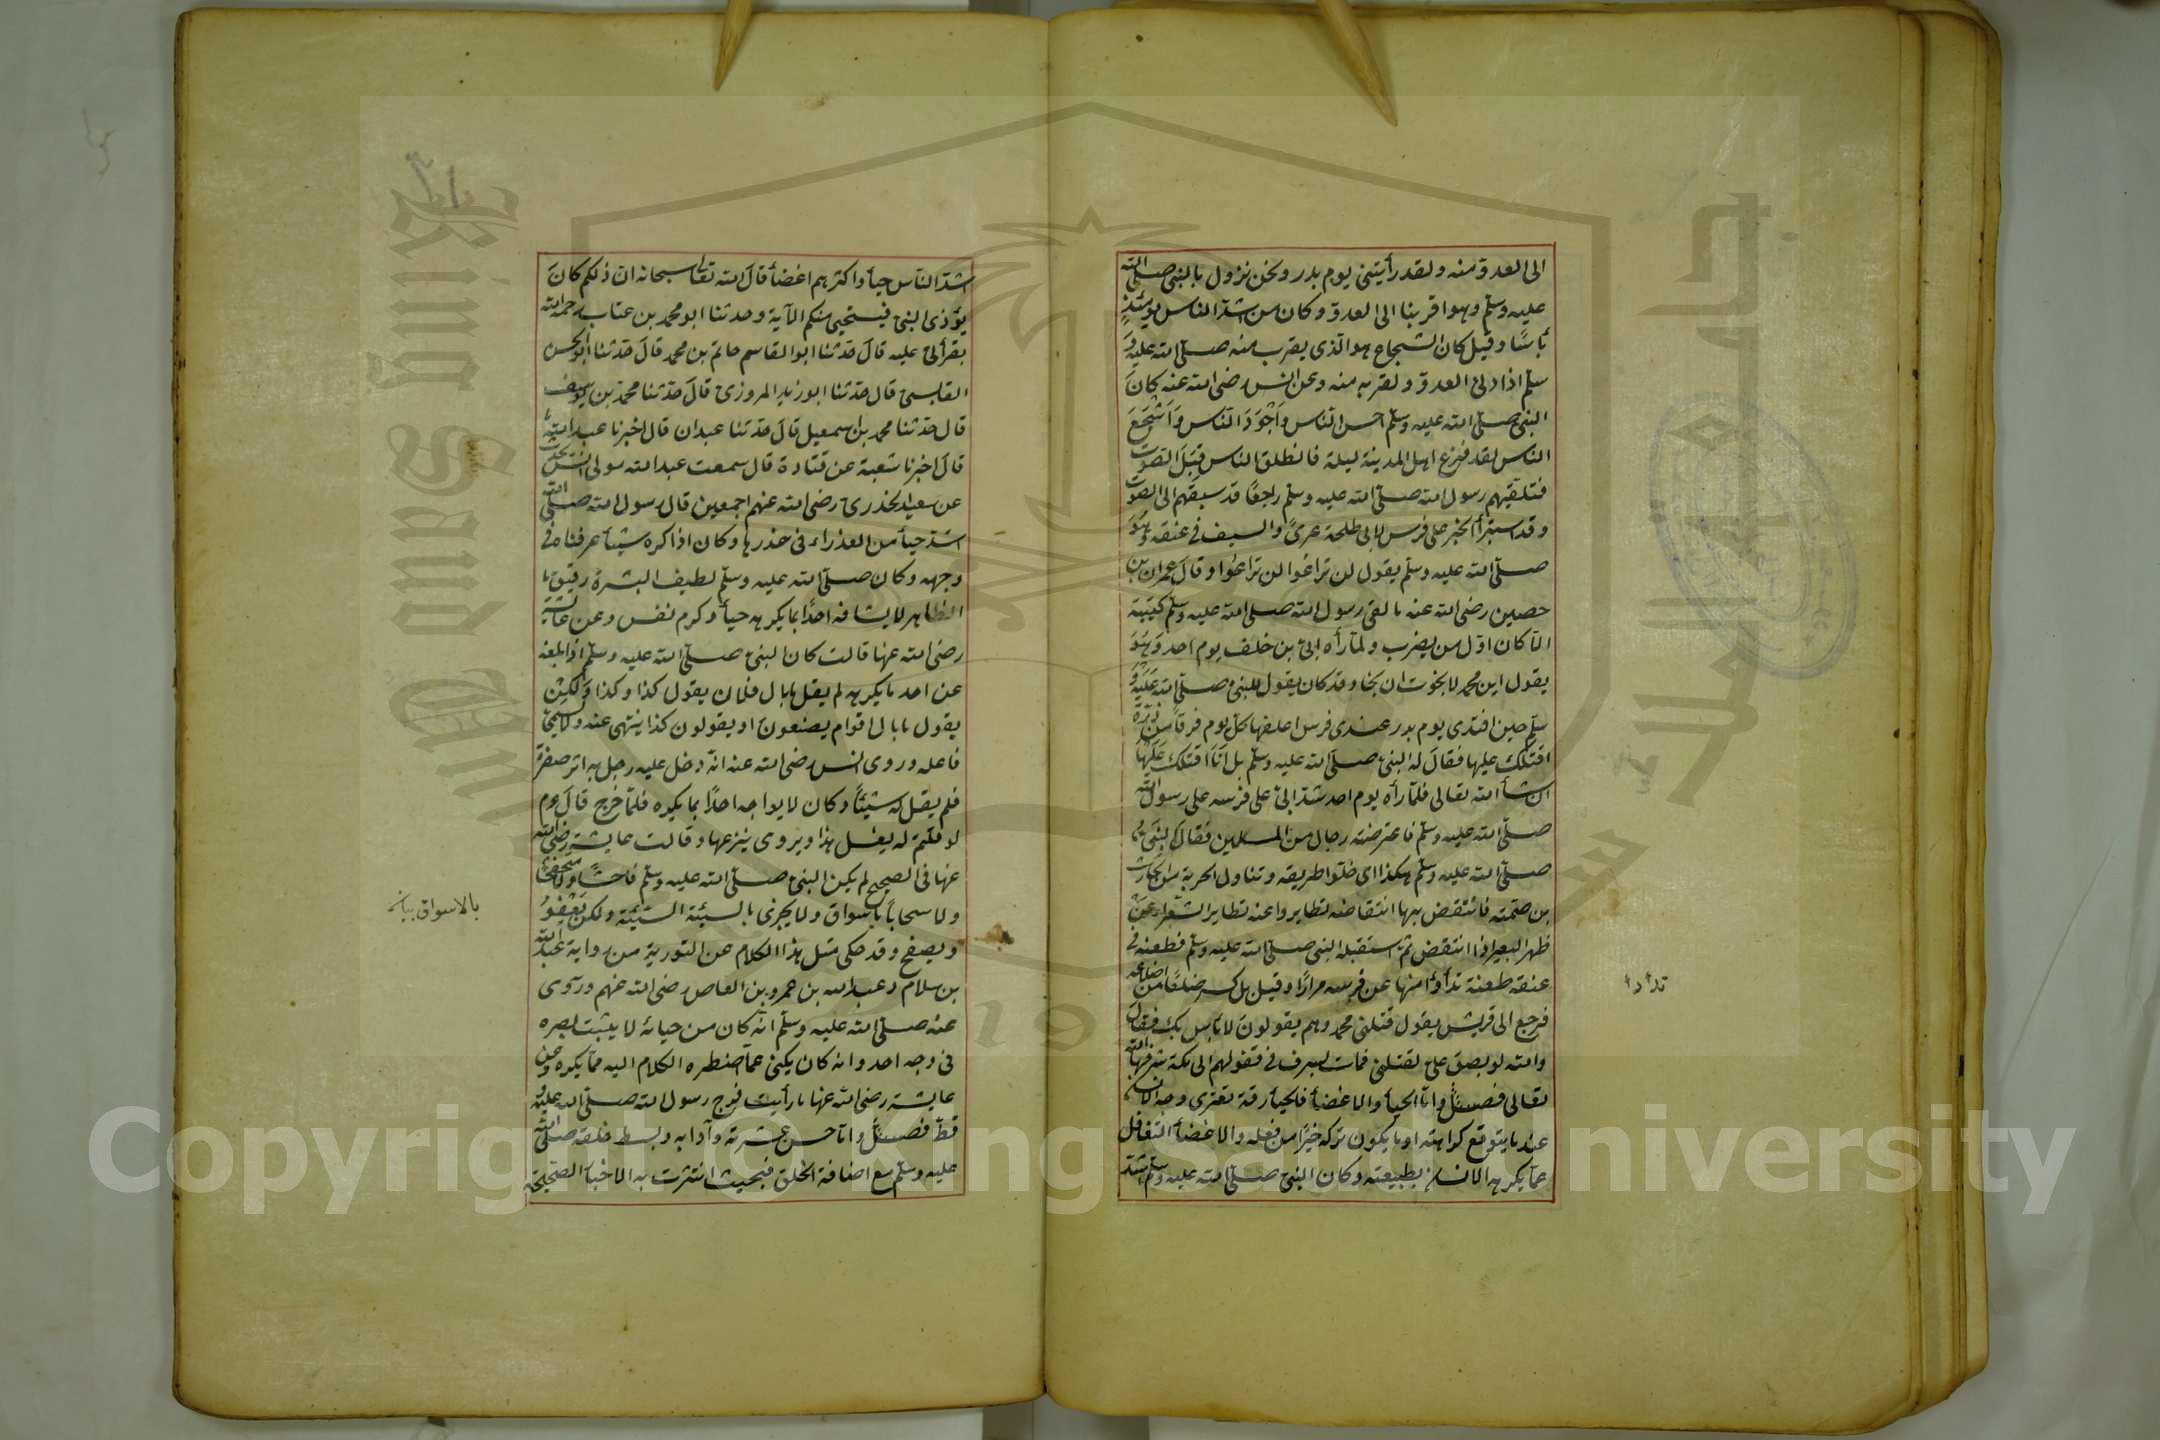 الى العدو منه ولقد رأيتني يوم بدر ونحن نزول بالنبي صلى الله
عليه وسلم وهو اقربنا الى العدو وكان من اشد الناس يومئذ
بأسا وقيل كان الشجاع هو الذي يقرب منه صلى الله عليه و
سلم اذا دنى العدو ولقربه منه وعن انس رضى الله عنه كان
النبي صلى الله عليه وسلم احسن الناس واجود الناس واشجع
الناس لقد فزع اهل المدينة ليلة فانطلق الناس قبل الصوت
فتلقيهم رسول الله صلى الله عليه وسلم راجعا قد سبقهم الى الصوت
وقد استبرأ الخبر على فرس لابى طلحة عرى والسيف في عنقه وهو
صلى الله عليه وسلم يقول لن تراعوا لن تراعوا وقال عمران بن
حصين رضى الله عنه ما لقى رسول الله صلى الله عليه وسلم كتيبة
الا كان اول من يضرب ولما رأه ابى بن خلف يوم احد وهو
يقول اين محمد لا نجوت ان نجا وقد كان يقول للنبي صلى الله عليه و
سلم حين افتدى يوم بدر عندى فرس اعلفها كل يوم فرقا من ذرة
اقتلك عليها فقال له النبي صلى الله عليه وسلم بل انا اقتلك عليها
ان شاء الله تعالى فلما رأه يوم احد شد ابى على فرسه على رسول الله
صلى الله عليه وسلم فاعترضه رجال من المسلمين فقال النبي
صلى الله عليه وسلم هكذا اى خلوا طريقه وتناول الحربة من الحارث
بن صمته فانتقض بها انتقاضة تطايروا عنه تطاير الشعراء عن
ظهر البعير اذا انتقض ثم استقبله النبي صلى الله عليه وسلم فطعنه في
عنقه طعنة تدأدأ منها عن فرسه مرارا وقيل بل كسر ضلعا من اضلاعه
فرجع الى قريش يقول قتلنى محمد وهم يقولون لا بأس بك فقال
والله لو بصق على لقتلنى فمات بسرف في قفولهم الى مكة شرفها الله
تعالى فصل واما الحيأ والاغضأ فالحيأ رقة تعترى وجه الانسان
عند ما يتوقع كراهته او ما يكون تركه خيرا من فعله والاغضأ التغافل
عما يكره الانسان بطبيعته وكان النبي صلى الله عليه وسلم اشد
تدأدأ
اشد الناس حيأ واكثرهم اغضأ قال الله تعالى سبحانه ان ذلكم كان
يؤذى النبي فيستحيى منكم الآية وحدثنا ابو محمد بن عتاب رحمه الله
بقرأتى عليه قال حدثنا ابو القاسم حاتم بن محمد قال حدثنا ابو الحسن
القابسى قال حدثنا ابو زيد المروزى قال حدثنا محمد بن يوسف
قال حدثنا محمد بن اسمعيل قال حدثنا عبدان قال اخبرنا عبد الله
قال اخبرنا شعبة عن قتادة قال سمعت عبد الله مولى انس يحدث
عن سعيد الخدرى رضى الله عنهم اجمعين قال رسول الله صلى الله
اشد حيأ من العذراء في خدرها وكان اذا كره شيأ عرفناه في
وجهه وكان صلى الله عليه وسلم لطيف البشرة رقيق
الظاهر لا يشافه احدا بما يكرهه حيأ وكرم نفس وعن عايشة
رضى الله عنها قالت كان النبي صلى الله عليه وسلم اذا بلغه
عن احد ما يكرهه لم يقل ما بال فلان يقول كذا وكذا ولكن
يقول ما بال اقوام يصنعون او يقولون كذا ينتهى عنه ولا يسمى
فاعله وروى انس رضى الله عنه انه دخل عليه رجل به اثر صفرة
فلم يقل له شيئا وكان لا يواجه احدا بما يكره فلما خرج قال عم
لو قلتم له يغسل هذا ويروى ينزعها وقالت عايشة رضى الله
عنها في الصحيح لم يكن النبي صلى الله عليه وسلم فاحشا ولا متفحشا
ولا سخابا باسواق ولا يجزى بالسيئة السيئة ولكن يعفو
ويصفح وقد حكى مثل هذا الكلام عن التورية من رواية عبد الله
بن سلام وعبد الله بن عمرو بن العاص رضى الله عنهم وروى
عنه صلى الله عليه وسلم انه كان من حيائه لا يثبت بصره
في وجه احد وانه كان يكنى عما اضطره الكلام اليه مما يكره وعن
عايشة رضى الله عنها ما رأيت فرج رسول الله صلى الله عليه
قط فصل واما حسن عشرته وآدابه وبسط خلقه صلى الله
عليه وسلم مع اضافة الخلق فبحيث انتشرت به الاخبار الصحيحة
بالاسواق
Copyright © King Saud University
King Saud University
1957